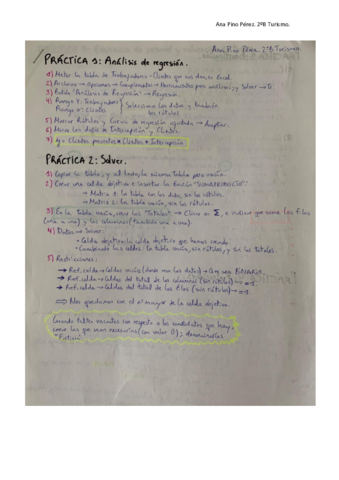 Ana Pino Pérez. 2ºB Turismo.
Ana Pino Pérez. 2ºB Turismo.
PRÁCTICA 1: Análisis de regresión.
1) Meter la tabla de Trabajadores-Clientes que nos dan en Excel.
2) Archivo → Opciones → Complementos → Herramientas para análisis, y Solver → Ir.
3) Datos "Análisis de Regresión" → Regresión.
4) Rango Y: Trabajadores
Rango X: Clientes
Selecciono los datos y también
los rótulos.
5) Marcar Rótulos y Curva de regresión ajustada → Aceptar.
6) Marco los datos de Intercepción y Clientes.
7) y = Clientes previstos * Clientes + Intercepción
PRÁCTICA 2: Solver.
1) Copiar la tabla, y al lado, la misma tabla pero vacía.
2) Creo una celda objetivo e inserto la función "SUMAPRODUCTO":
→ Matriz 1: la tabla con los datos, sin los rótulos.
→ Matriz 2: la tabla vacía, sin los rótulos.
3) En la tabla vacía, creo los "Totales" → Clico en Σ, e indico que sume las filas
(una a una) y las columnas (también una a una).
4) Datos → Solver
- Celda objetivo: la celda objetivo que hemos creado.
- Cambiando las celdas: la tabla vacía, sin rótulos, y sin los totales.
5) Restricciones:
→ Ref. celda → Celdas vacías (donde van los datos) → Que sea BINARIO.
→ Ref. celda → Celdas del total de las columnas (sin rótulos) → = 1.
→ Ref. celda → Celdas del total de las filas (sin rótulos) → = 1.
⇒ Nos quedamos con el nº mayor de la celda objetivo.
Cuando falten vacantes con respecto a los candidatos que hay,
creo las que sean necesarias (con valor 0), denominadas
"Ficticio".